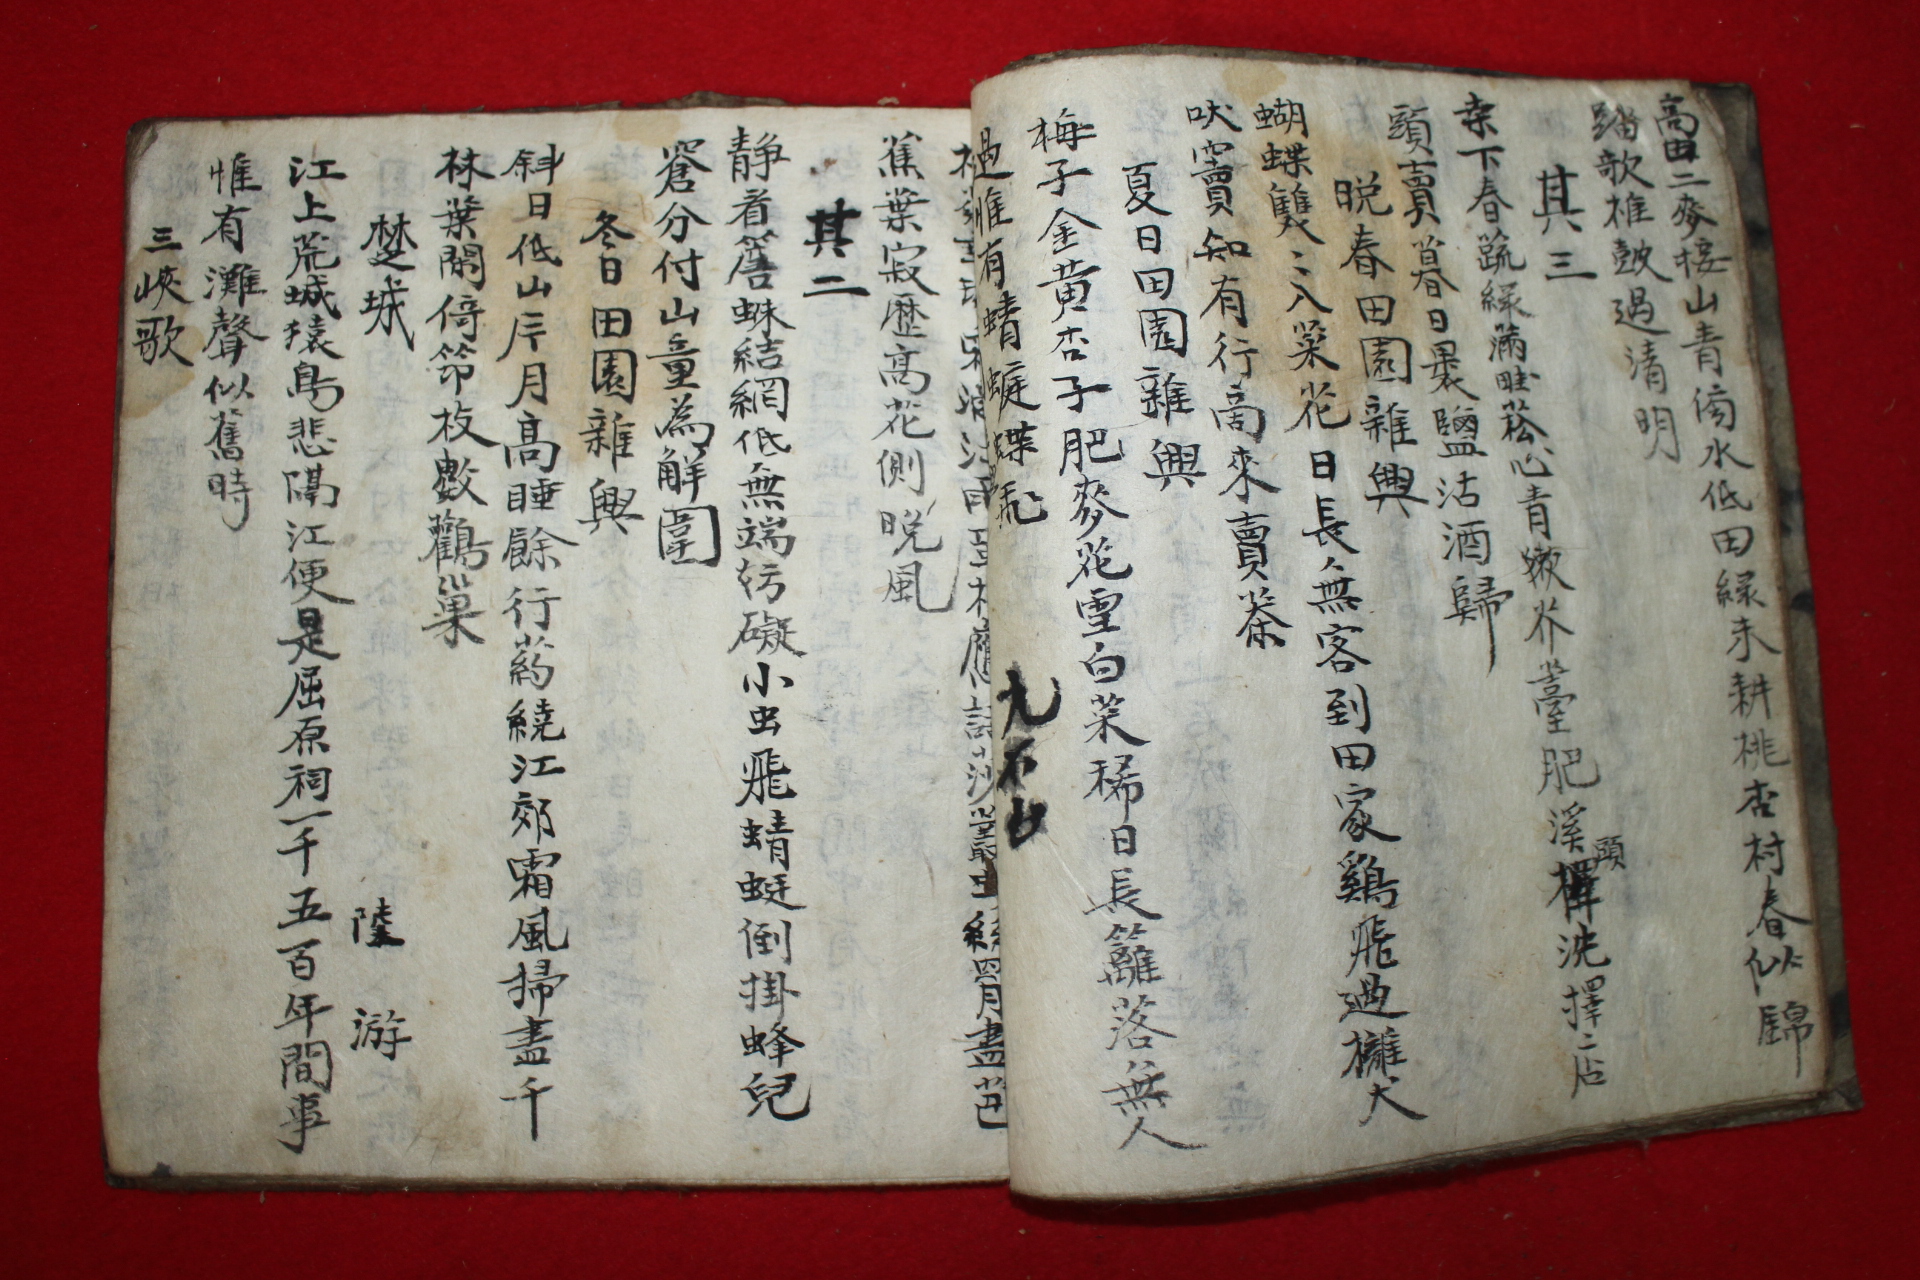 高田二麥接山青傍水低田綠未耕桃杏村春似錦
踏歌椎皷過清明
其三
桒下春蔬綠滿畦菘心青嫩芥薹肥溪頭洗擇二店
頭賣暮日裹鹽沽酒歸
晩春田園雜興
蝴蝶雙二入菜花日長無客到田家鷄飛過櫳犬
吠竇知有行啇來賣茶
夏日田園雜興
梅子金黄杏子肥麥花雪白菜稀日長籬落無人
過惟有蜻蜓蝶飛
九不山
蕉葉寂歷高花側晩風
其二
静着簷蛛結網低無端妨礙小虫飛蜻蜓倒掛蜂兒
窘分付山童為解圍
冬日田園雜興
斜日低山片月高睡餘行药繞江郊霜風掃盡千
林葉閑倚笻枝數鸛巢
楚城 陸游
江上荒城猿鳥悲隔江便是屈原祠一千五百年間事
惟有灘聲似舊時
三峽歌